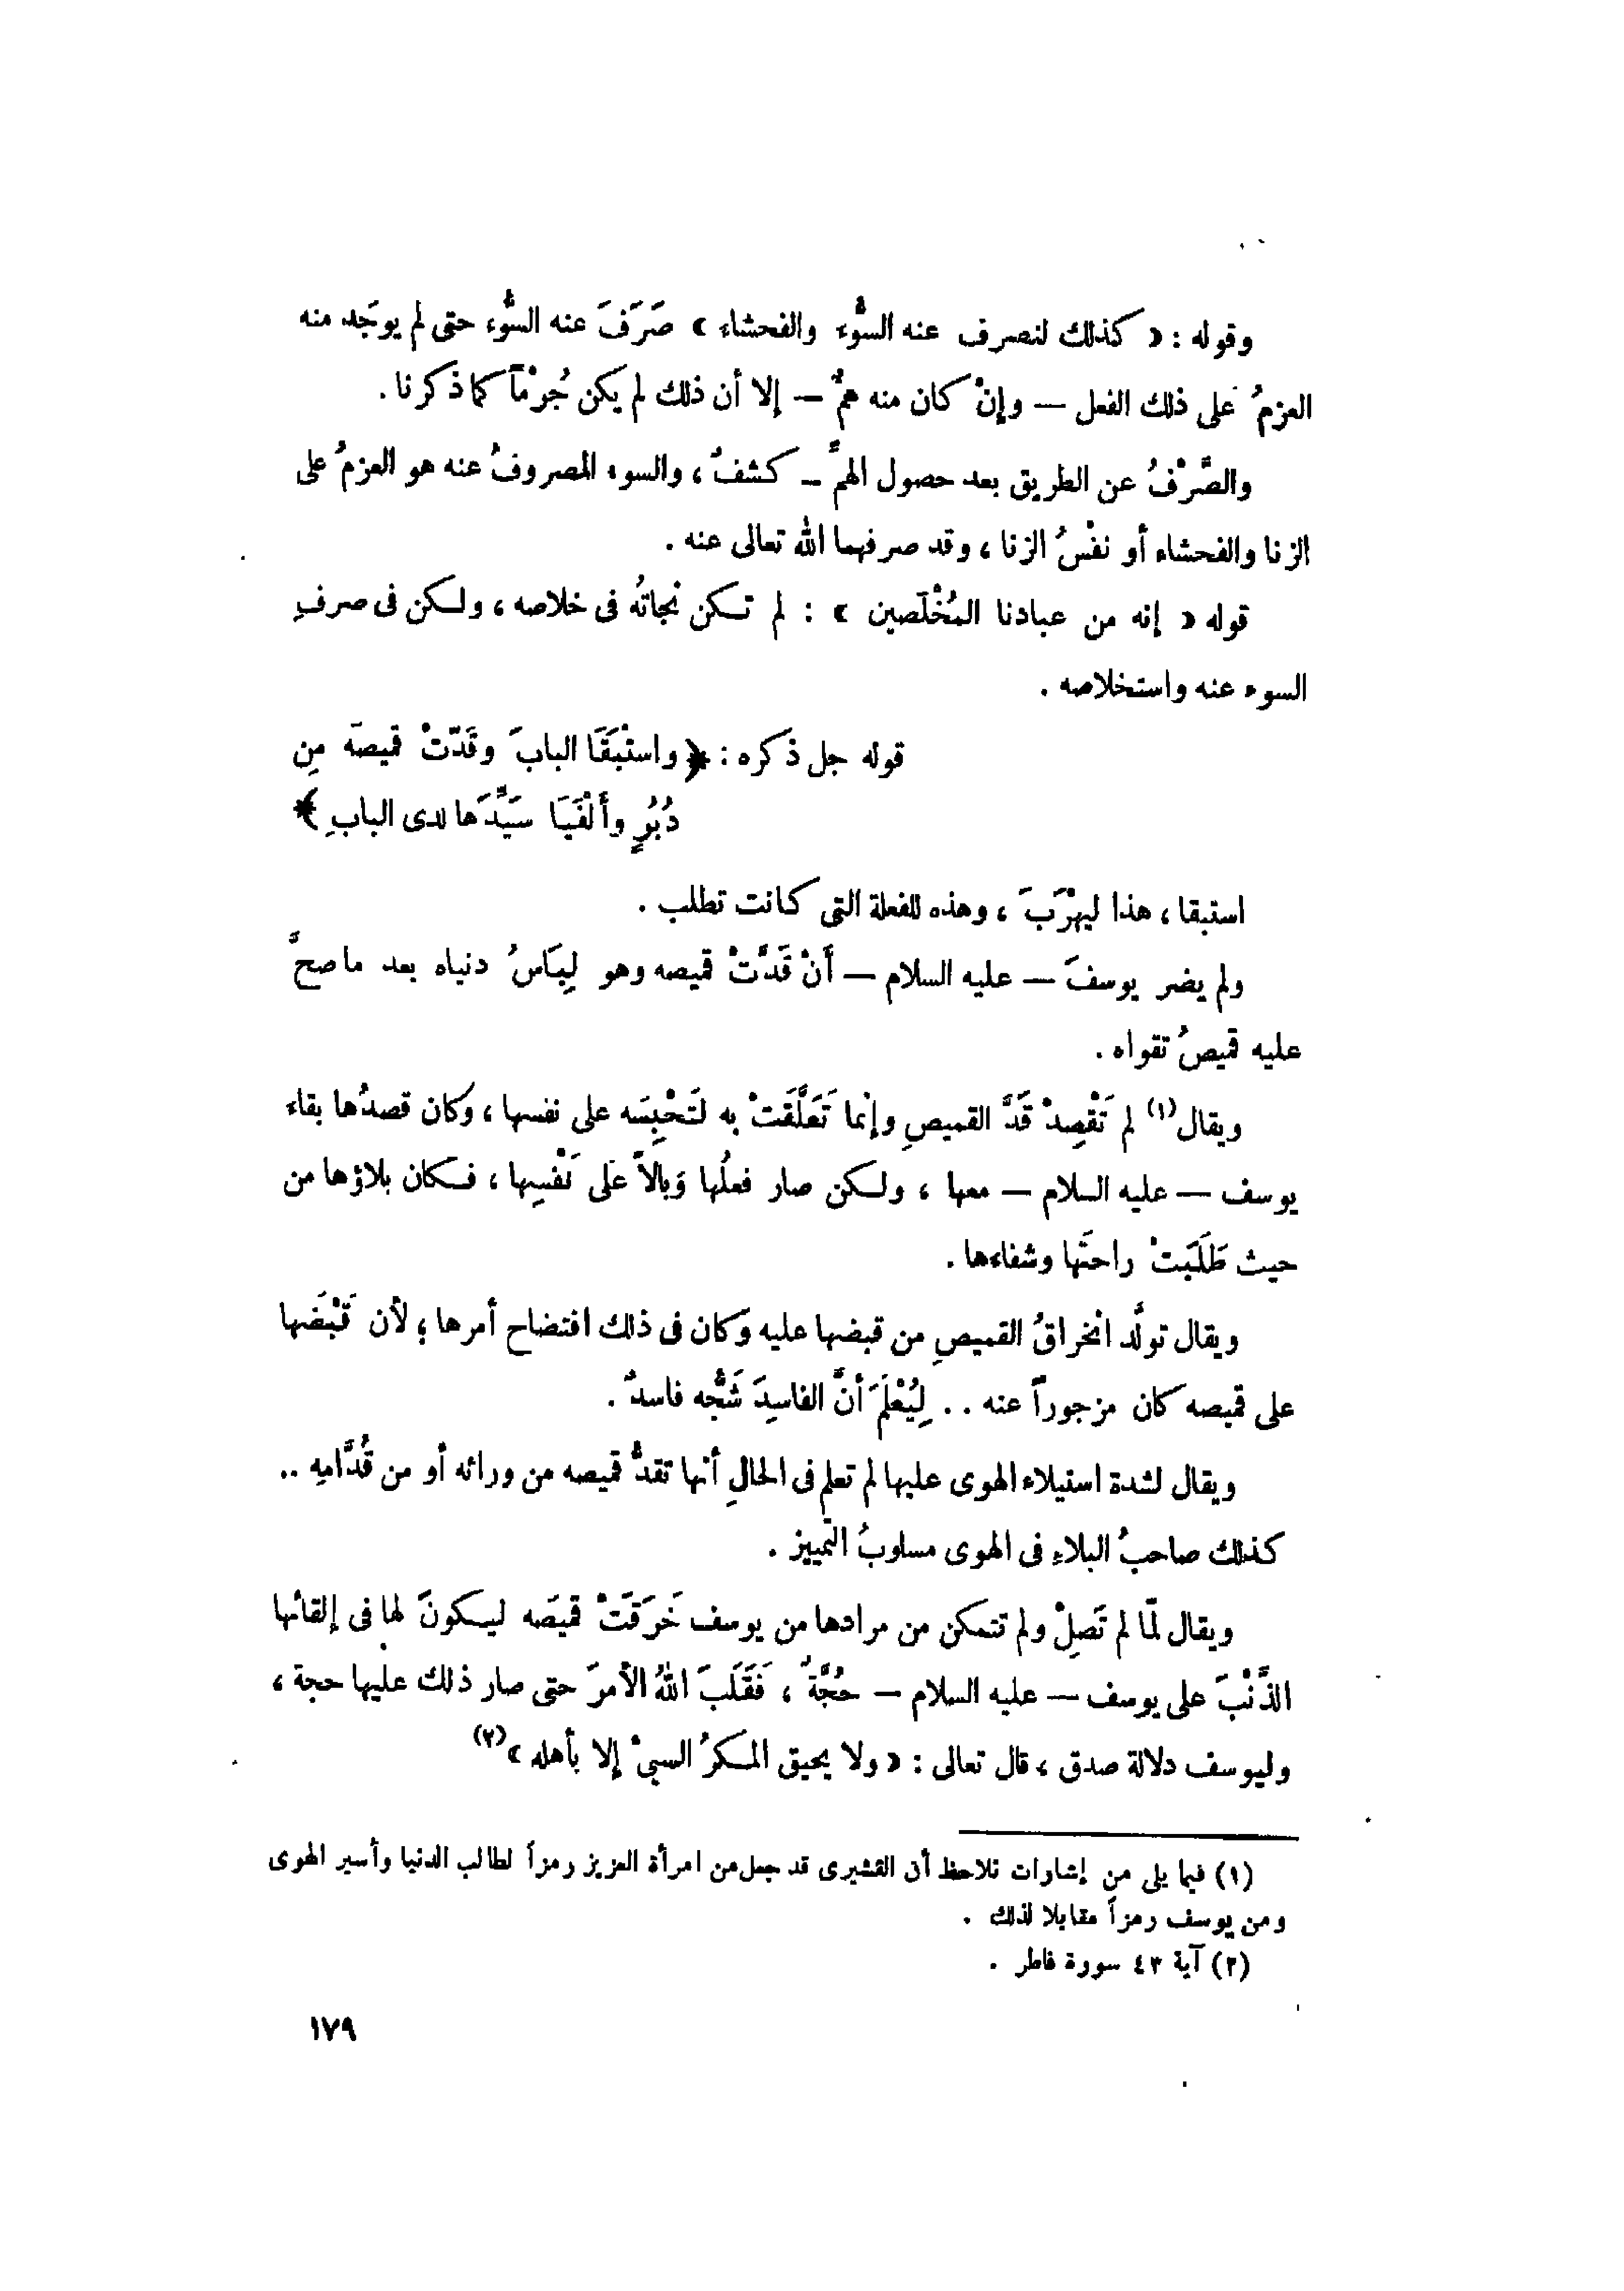 وقوله : « كذلك لنصرف عنه السُّوء والفحشاء » صَرَفَ عنه السُّوء حتى لم يوجَد منه
العزمُ على ذلك الفعل — وإنْ كان منه همٌّ — إلا أن ذلك لم يكن جُرْماً كما ذكرنا .
والصَّرْفُ عن الطريق بعد حصول الهمِّ – كشفٌ ، والسوء المصروفُ عنه هو العزمُ على
الزنا والفحشاء أو نفْسُ الزنا ، وقد صرفهما الله تعالى عنه .
قوله « إنه من عبادنا المُخْلَصين » : لم تكن نجاتُه فى خلاصه ، ولكن فى صرفِ
السوء عنه واستخلاصه .
قوله جل ذكره : ﴿ واستْبَقَا البابَ وقَدَّتْ قميصَه مِن
دُبُرٍ وأَلْفَيَا سَيِّدَها لدى البابِ ﴾
استبقا ، هذا ليهْرَبَ ، وهذه للفعلة التى كانت تطلب .
ولم يضر يوسفَ — عليه السلام — أَنْ قَدَّتْ قميصه وهو لِبَاسُ دنياه بعد ما صحَّ
عليه قميصُ تقواه .
ويقال (١) لم تَقْصِدْ قَدَّ القميصِ وإنما تَعَلَّقَتْ به لتَحْبِسَه على نفسها ، وكان قصدُها بقاء
يوسف — عليه السلام — معها ، ولكن صار فعلُها وَبالاً على نَفْسِها ، فكان بلاؤها من
حيث طَلَبَتْ راحتَها وشفاءها .
ويقال تولَّد انخراقُ القميصِ من قبضها عليه وكان فى ذلك افتضاح أمرها ؛ لأن قَبْضَها
على قميصه كان مزجوراً عنه . . لِيُعْلَمَ أنَّ الفاسِدَ شَجُّه فاسدٌ .
ويقال لشدة استيلاء الهوى عليها لم تعلم فى الحالِ أنها تقدُّ قميصه من ورائه أو من قُدَّامِه ..
كذلك صاحبُ البلاءِ فى الهوى مسلوبُ التمييز .
ويقال لمَّا لم تَصِلْ ولم تتمكن من مرادها من يوسف خَرَقَتْ قميصَه ليكونَ لها فى إلقائها
الذَّنْبَ على يوسف — عليه السلام — حُجَّةٌ ، فَقَلَبَ اللهُ الأمرَ حتى صار ذلك عليها حجة ،
وليوسف دلالة صدق ، قال تعالى : « ولا يحيق المكرُ السيىْ إلا بأهله » (٢)
(١) فيما يلى من إشارات نلاحظ أن القشيرى قد جعل من امرأة العزيز رمزاً لطالب الدنيا وأسير الهوى
ومن يوسف رمزاً مقابلا لذلك .
(٢) آية ٤٣ سورة فاطر .
١٧٩